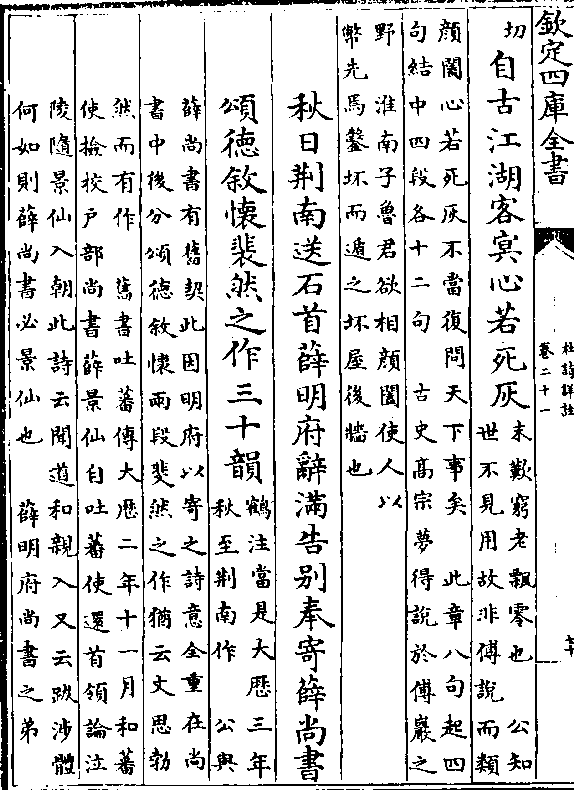 欽定四庫全書
杜詩詳註
卷二十一
切自古江湖客冥心若死灰末歎窮老飄零也 公知
世不見用故非傅說而類
顔闔心若死灰不當復問天下事矣 此章八句起四
句結中四段各十二句 古史髙宗夢得說於傅巖之
野 淮南子魯君欲相顔闔使人以
幣先焉鑿坏而遁之坏屋後牆也
秋日荆南送石首薛明府辭滿告別奉寄薛尚書
頌德敘懷裴然之作三十韻鶴注當是大厯三年
秋至荆南作 公與
薛尚書有舊契此因明府以寄之詩意全重在尚
書中後分頌德敘懷兩段斐然之作猶云文思勃
然而有作 舊書吐蕃傳大厯二年十一月和蕃
使撿挍戸部尚書薛景仙自吐蕃使還首領論泣
陵隨景仙入朝此詩云聞道和親入又云跋涉體
何如則薛尚書必景仙也 薛明府尚書之弟